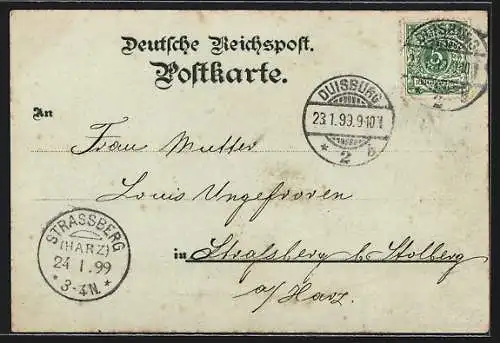 Deutsche Reichspost.
Postkarte.
DUISBURG
23.1.99.9-10V
* 2 b
DUISBURG
An
Frau Mutter
Louis Ungefroren
in Strassberg b. Stolberg
a/Harz.
STRASSBERG
(HARZ)
24 1.99
* 3-4N. *